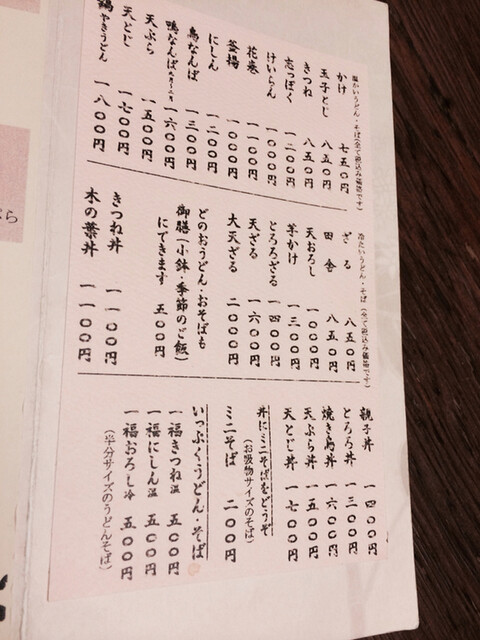 温かいうどん・そば(全て税込み価格です)
かけ 七五〇円
玉子とじ 八五〇円
きつね 八五〇円
志っぽく 一二〇〇円
けいらん 一〇〇〇円
花巻 一一〇〇円
釜揚 一〇〇〇円
にしん 一二〇〇円
鳥なんば 一三〇〇円
鴨なんば 一六〇〇円
天ぷら 一五〇〇円
天とじ 一七〇〇円
鍋やきうどん 一八〇〇円
冷たいうどん・そば(全て税込み価格です)
ざる 八五〇円
田舎 八五〇円
天おろし 一〇〇〇円
芋かけ 一三〇〇円
とろろざる 一四〇〇円
天ざる 一六〇〇円
大天ざる 二〇〇〇円
どのおうどん・おそばも
御膳(小鉢・季節のご飯)
にできます 五〇〇円
きつね丼 一一〇〇円
木の葉丼 一一〇〇円
親子丼 一四〇〇円
とろろ丼 一三〇〇円
焼き鳥丼 一六〇〇円
天ぷら丼 一五〇〇円
天とじ丼 一七〇〇円
丼にミニそばをどうぞ
(お吸物サイズのそば)
ミニそば 二〇〇円
いっぷくうどん・そば
一福きつね温 五〇〇円
一福にしん温 五〇〇円
一福おろし冷 五〇〇円
(半分サイズのうどんそば)